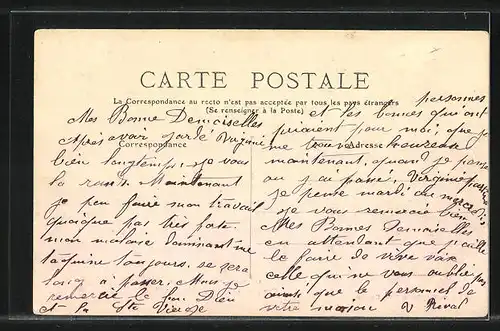 CARTE POSTALE
La Correspondance au recto n'est pas acceptée par tous les pays étrangers
(Se renseigner à la Poste)
Correspondance
Adresse
Mes Bonne Demoiselles
Après avoir gardé Virginie
bien longtemps je vous
la rends. Maintenant
je peu faire mon travail
quoique pas très forte
mon malaise
toujours se sera
long a passer. Mais je
remercie le bon Dieu
et la Ste Vierge
personnes
et les bonnes qui ont
prièrent pour moi, que je
me trouve heureuse
maintenant, quand je pense
ou j'ai passé, Virginie
je pense mardi ou mercredi
je vous remercie bien
Mes Bonnes Demoiselles
en attendant que je puisse
le faire de vive voix
celle qui ne vous oublie pas
ainsi que le personnel de
votre maison V Rival